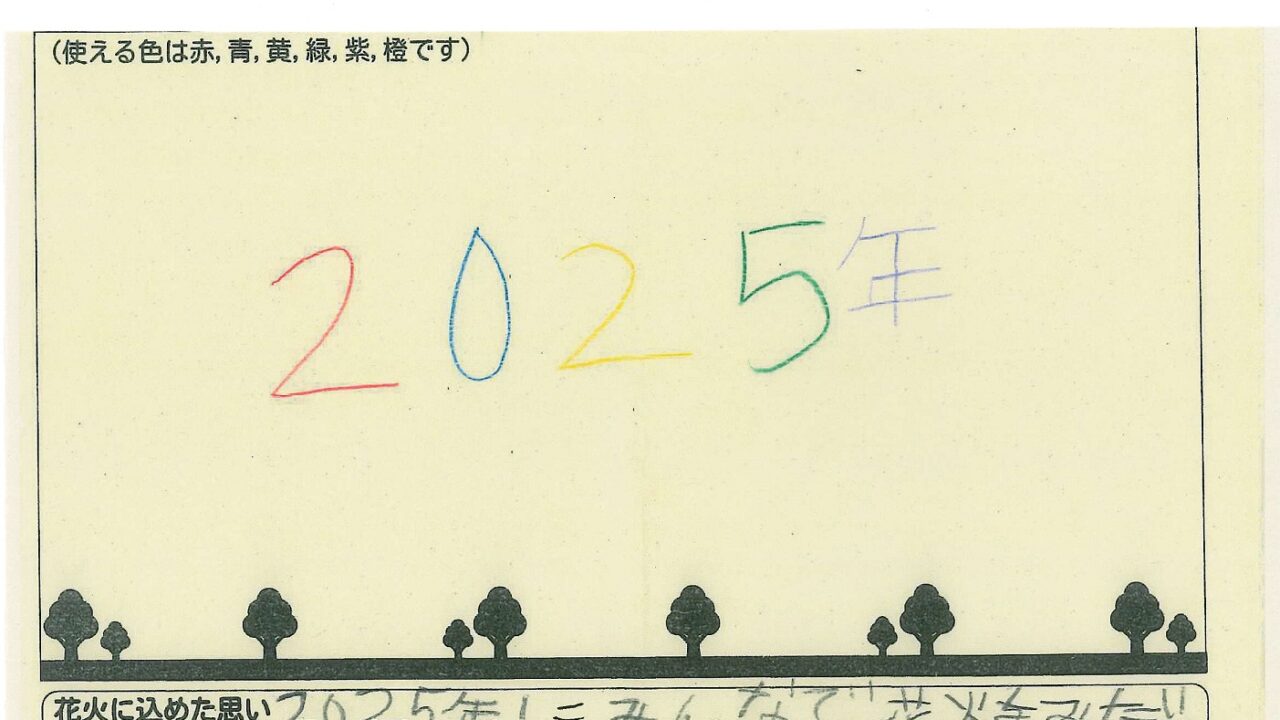 (使える色は赤, 青, 黄, 緑, 紫, 橙です)
2025年
花火に込めた思い 2025年にみんなで花火をみたい